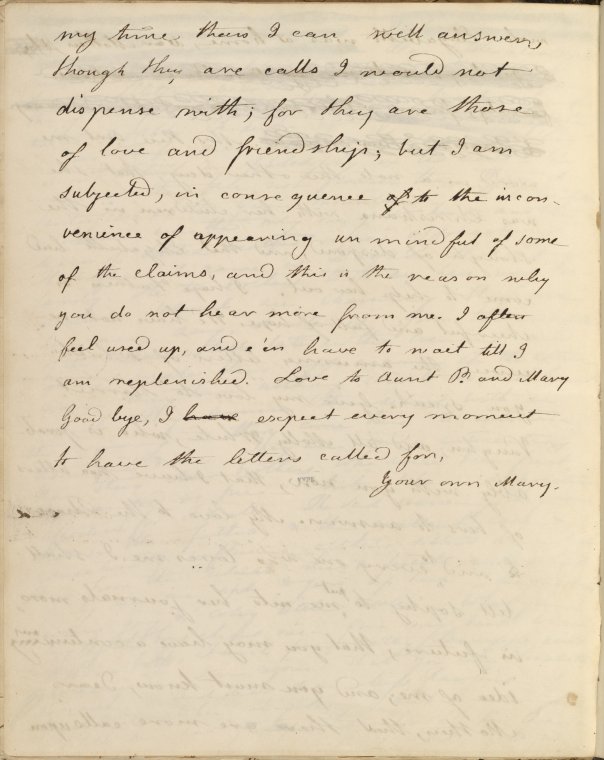 my time, than I can well answer,
though they are calls I would not
dispense with; for they are those
of love and friendship; but I am
subjected, in consequence of to the incon-
venience of appearing unmindful of some
of the claims, and this is the reason why
you do not hear more from me. I often
feel used up, and e'en have to wait till I
am replenished. Love to Aunt P. and Mary
Good bye, I have expect every moment
to have the letters called for,
Your own Mary.